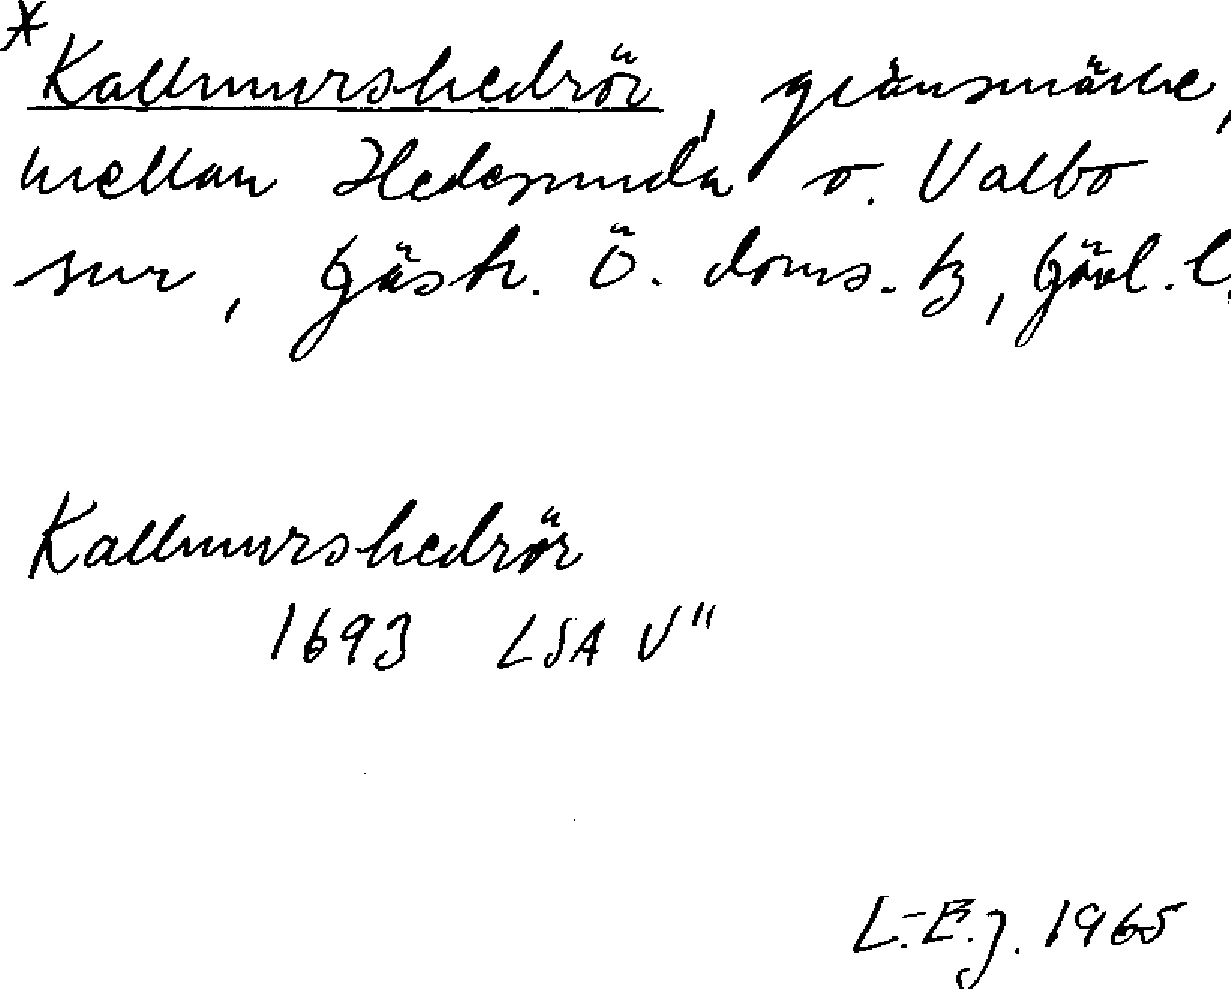 * Kallmurshedrör, gränsmärke,
mellan Hedesunda o. Valbo
snr, Gästr. Ö. doms. tg, Gävl. l.
Kallmurshedrör
1693 LSA V"
L.-E.J. 1965